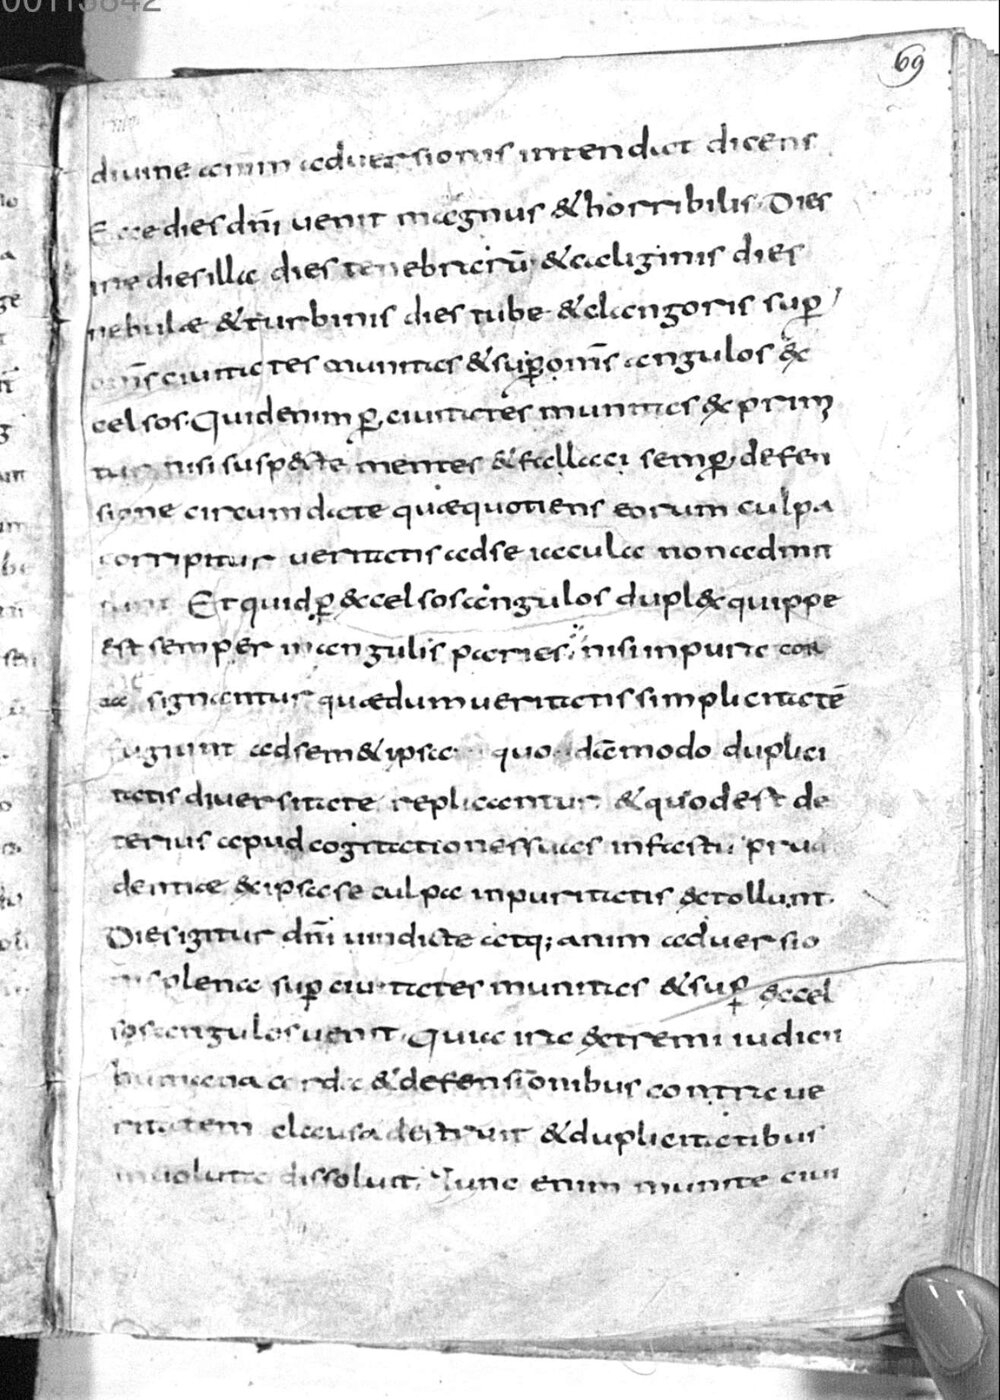 00115842
69
divine animaduersionis intendat dicens
Ecce dies dñi uenit magnus & horribilis. Dies
irae dies illa dies tenebrarū & caliginis dies
nebulae & turbinis dies tube & clangoris sup
om̄s ciuitates munitas & sup om̄s angulos ex
celsos. Quid enim p ciuitates munitas exprim
tur nisi suspectae mentes & fallaci semp defen
sione circumdate quae quotiens eorum culpa
corripitur ueritatis ad se iacula non admit
tunt Et quid p excelsos angulos duplex quippe
est semper in angulis paries, nisi inpura cor
da signantur quae dum ueritatis simplicitatē
fugiunt ad sem&ipsa quodāmodo duplici
tatis diuersitate replicantur & quod est de
terius apud cogitationes suas in fastu pru
dentiae ex ipsa se culpa inpuritatis extollunt.
Dies igitur dñi uindictae atq; anim aduersio
nis plena sup ciuitates munitas & sup excel
sos angulos uenit. Quia ira extremi iudicii
humana corda & defensionibus contra ue
ritatem clausa destruit & duplicitatibus
inuoluta dissoluit. Tunc enim munite ciui